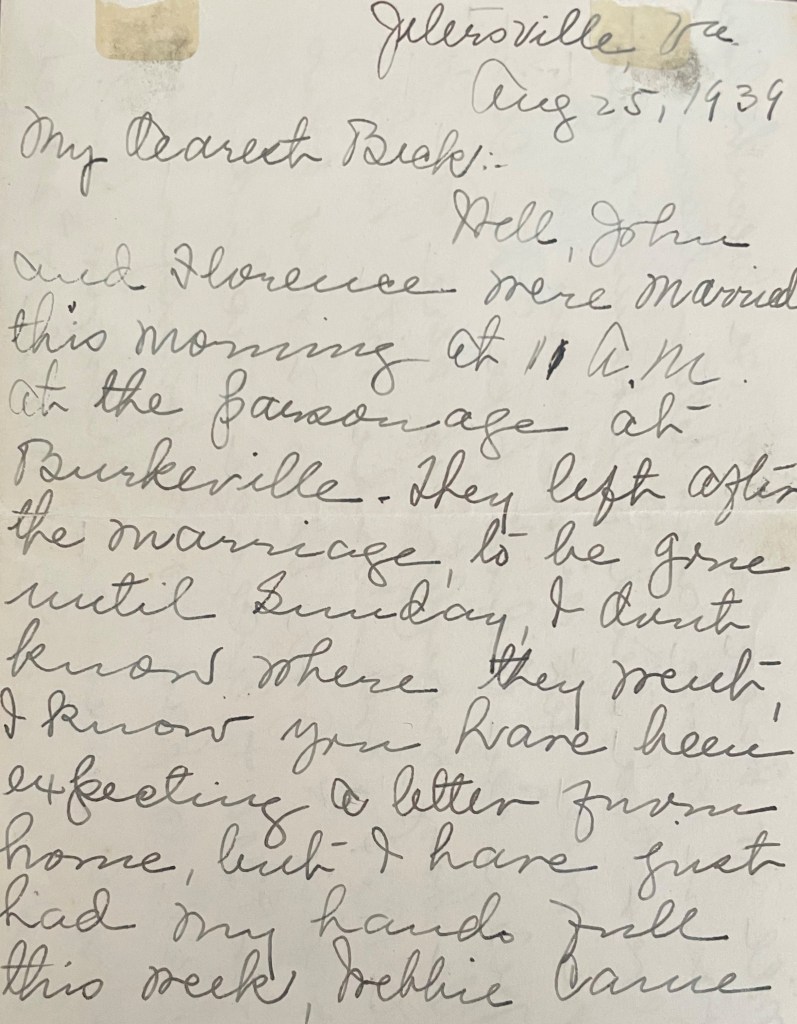 Jetersville, Va.
Aug 25, 1939
My Dearest Buck:-
Well, John
and Florence were married
this morning at 11 A.M.
at the parsonage at
Burkeville. They left after
the marriage, to be gone
until Sunday, I dont
know where they went,
I know you have been
expecting a letter from
home, but I have just
had my hands full
this week, Webbie came